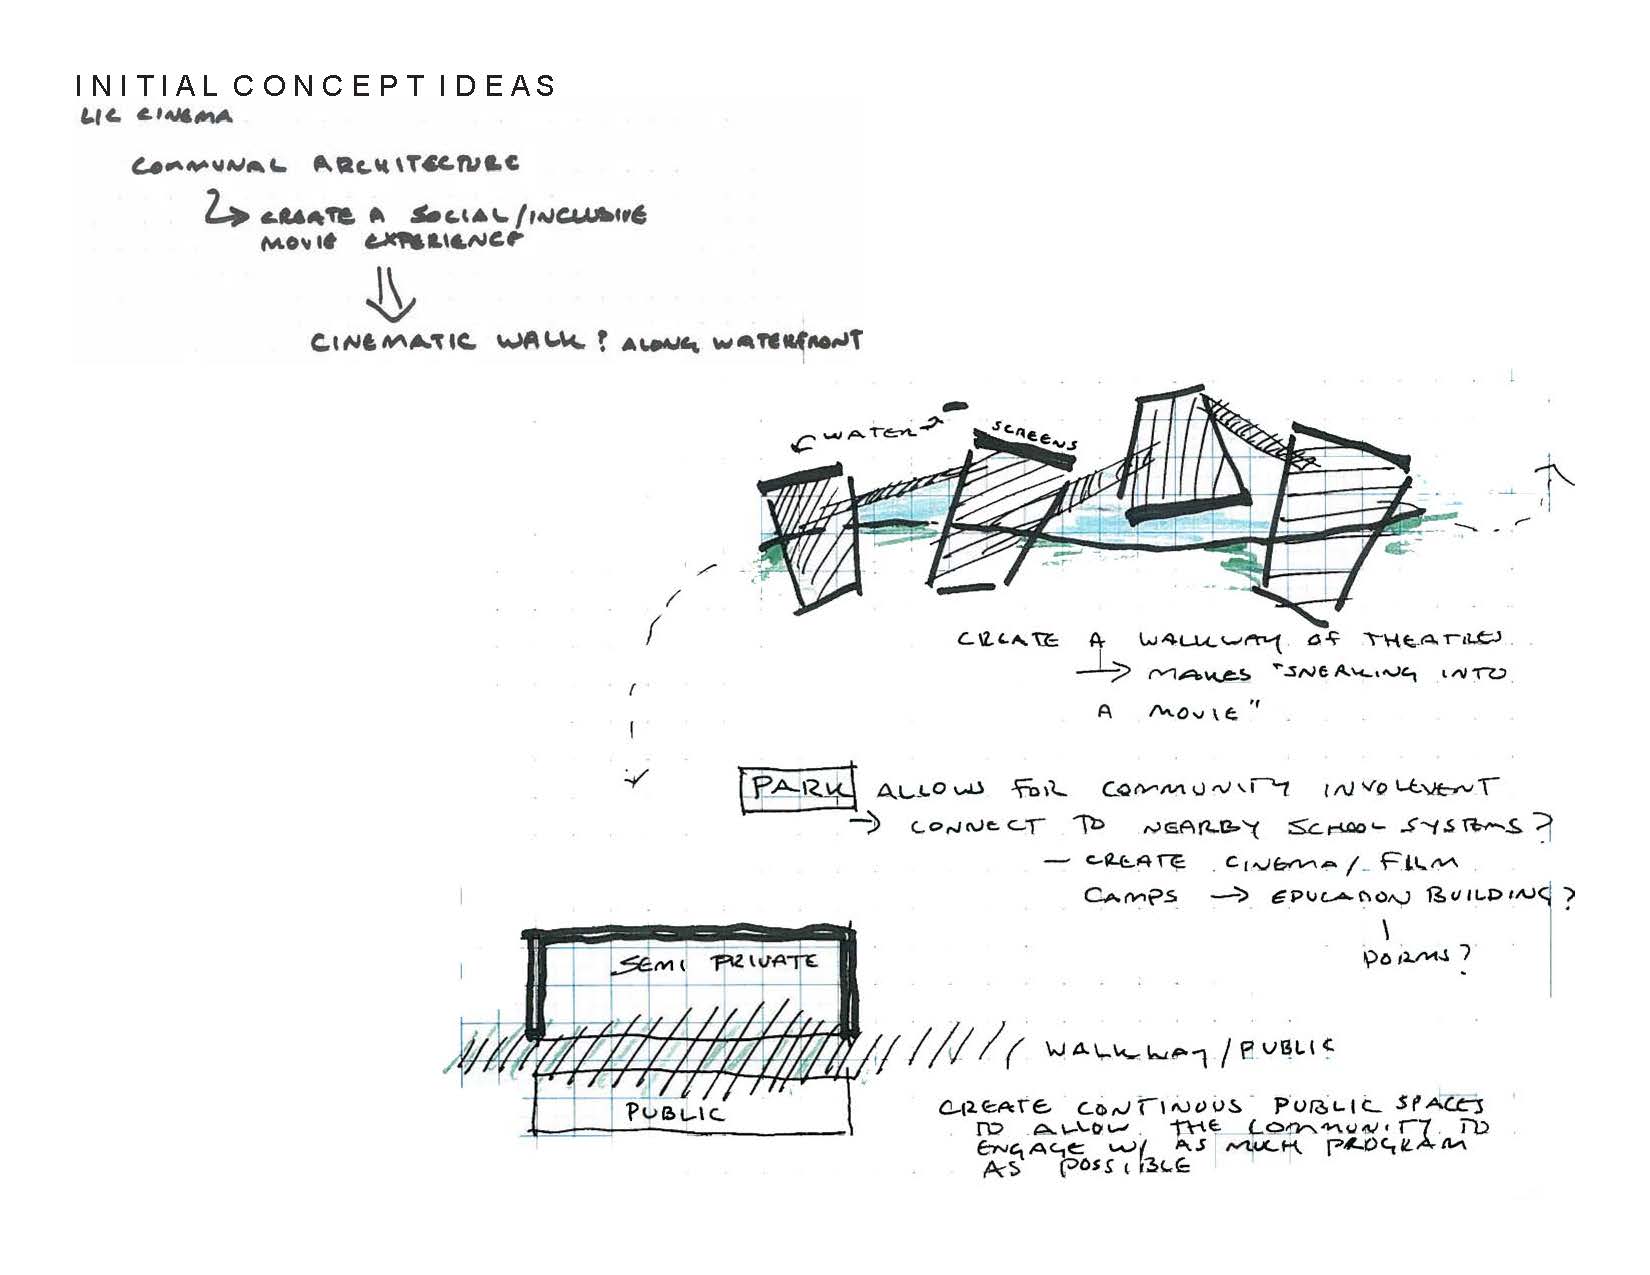 INITIAL CONCEPT IDEAS
LIC CINEMA
COMMUNAL ARCHITECTURE
CREATE A SOCIAL/INCLUSIVE
MOVIE EXPERIENCE
CINEMATIC WALK? ALONG WATERFRONT
WATER
SCREENS
CREATE A WALKWAY OF THEATRES
MAKES "SNEAKING INTO
A MOVIE"
PARK ALLOWS FOR COMMUNITY INVOLEVENT
→ CONNECT TO NEARBY SCHOOL SYSTEMS?
- CREATE CINEMA/FILM
CAMPS → EDUCATION BUILDING?
DORMS?
SEMI PRIVATE
WALKWAY/PUBLIC
PUBLIC
CREATE CONTINOUS PUBLIC SPACES
TO ALLOW THE COMMUNITY TO
ENGAGE W/ AS MUCH PROGRAM
AS POSSIBLE